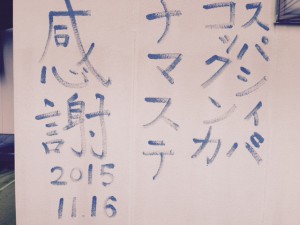 スパシィバ
コップンカ
ナマステ
感謝
2015
11.16